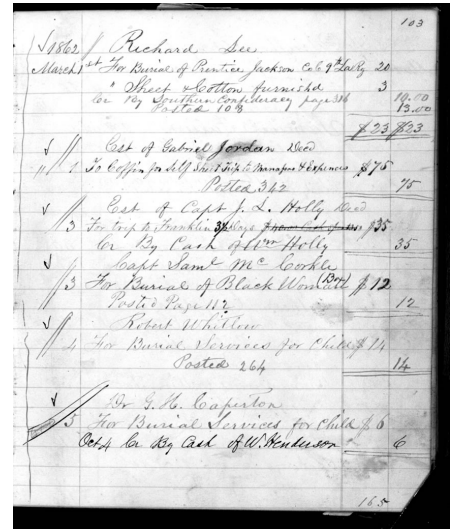 103
1862 Richard See
March 1st For Burial of Prentice Jackson Co C 9th 20
" Sheet & Cotton furnishd 3
Cr By Southern Confederacy page 316 10.00
Posted 108 13.00
$23 $23
Est of Gabriel Jordan Decd
" 1 To Coffin for Self Trip to Manapas & Expences $75
Posted 342 75
Est of Capt J. L. Holly Decd
" 3 For trip to Franklin Days $35
Cr By Cash of Wm Holly 35
Capt Saml McCorkle
" 3 For Burial of Black Woman (Box) $12
Posted Page 112 12
Robert Whitlow
" 4 For Burial Services for Child $14
Posted 264 14
Dr G. H. Caperton
" 5 For Burial Services for Child $6
Oct 4 Cr By Cash of W. Henderson 6
165